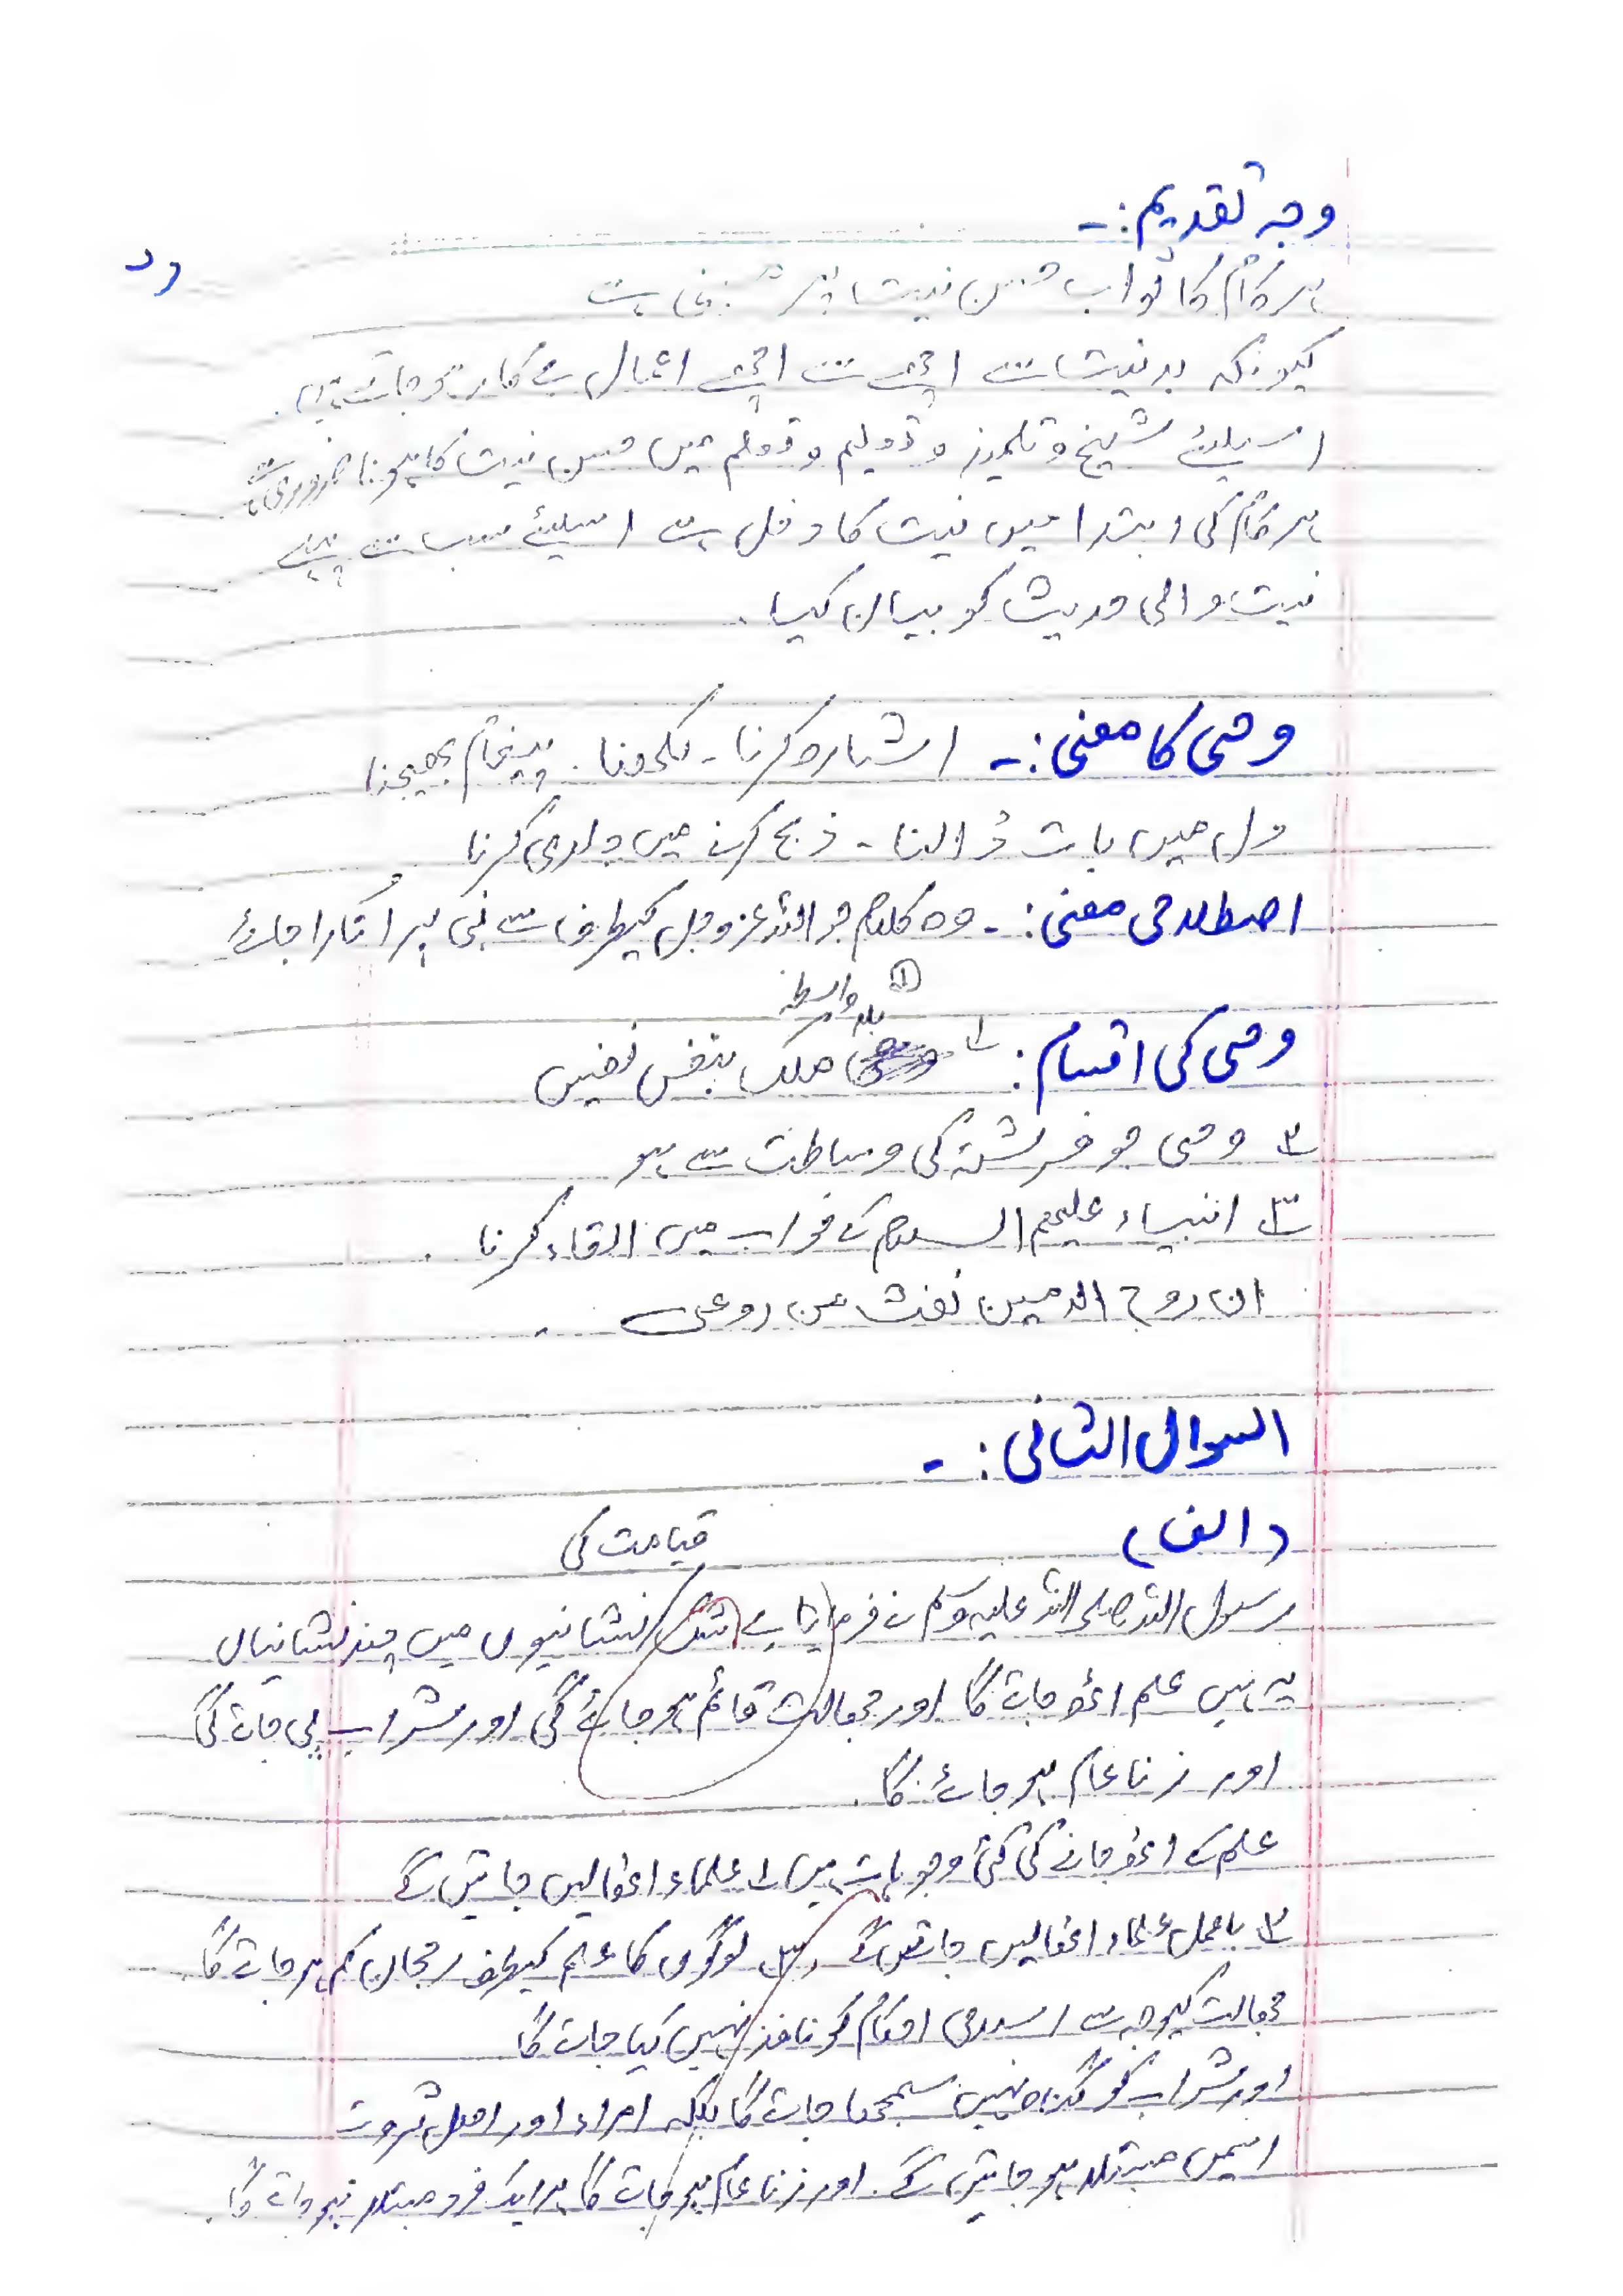 وجہ تقدیم :-
ہر کام کا ثواب حسن نیت پر مبنی ہے
کیونکہ بد نیت سے اچھے سے اچھے اعمال بے کار ہو جاتے ہیں.
اسیلئے شیخ و تلمیذ و تعلیم و تعلم میں حسن نیت کا ہونا ضروری ہے
ہر کام کی ابتدا میں نیت کا دخل ہے اسلیئے سب سے پہلے
نیت والی حدیث کو بیان کیا .
وحی کا معنی :- اشارہ کرنا - لکھنا . پیغام بھیجنا
دل میں بات ڈالنا - ذبح کرنے میں جلدی کرنا
اصطلاحی معنی :- وہ کلام جو اللہ عزوجل کیطرف سے نبی پر اتارا جائے
① بلا واسطہ
وحی کی اقسام : ۱ ملک بنفس نفیس
۲ وحی جو فرشتہ کی وساطت سے ہو
۳ انبیاء علیھم السلام کے خواب میں القاء کرنا .
ان روح الامین نفث من روعی .
السوال الثانی :-
(الف)
قیامت کی
رسول اللہ صلی اللہ علیہ وسلم نے فرمایا بے شک نشانیوں میں چند نشانیاں
یہ ہیں علم اٹھ جائے گا اور جھالت قائم ہو جائے گی اور شراب پی جائے گی
اور زنا عام ہو جائے گا .
علم کے اٹھ جانے کی کئی وجوہات ہیں ۱ علماء اٹھالیں جائیں گے
۲ باعمل علماء اٹھالیں جائیں گے ۳ لوگوں کا علم کیطرف رجحان کم ہو جائے گا.
جھالت کیوجہ سے اسلامی احکام کو نافذ نہیں کیا جائے گا
اور شراب کو گناہ نہیں سمجھا جائے گا بلکہ امراء اور اھل ثروت
اسمیں مبتلا ہو جائیں گے . اور زنا عام ہو جائے گا ہر ایک فرد مبتلا ہو جائے گا.